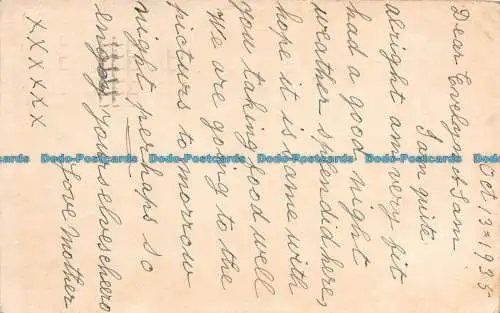 Oct 13 = 1935
Dear Evelyn & Sam
I am quite
alright am very fit
had a good night
weather splendid here,
hope it is same with
you taking food well
We are going to the
pictures to morrow
night perhaps so
enjoy yourselves cheero
Love Mother
X X X X X
Dodo-Postcards Dodo-Postcards Dodo-Postcards Dodo-Postcards